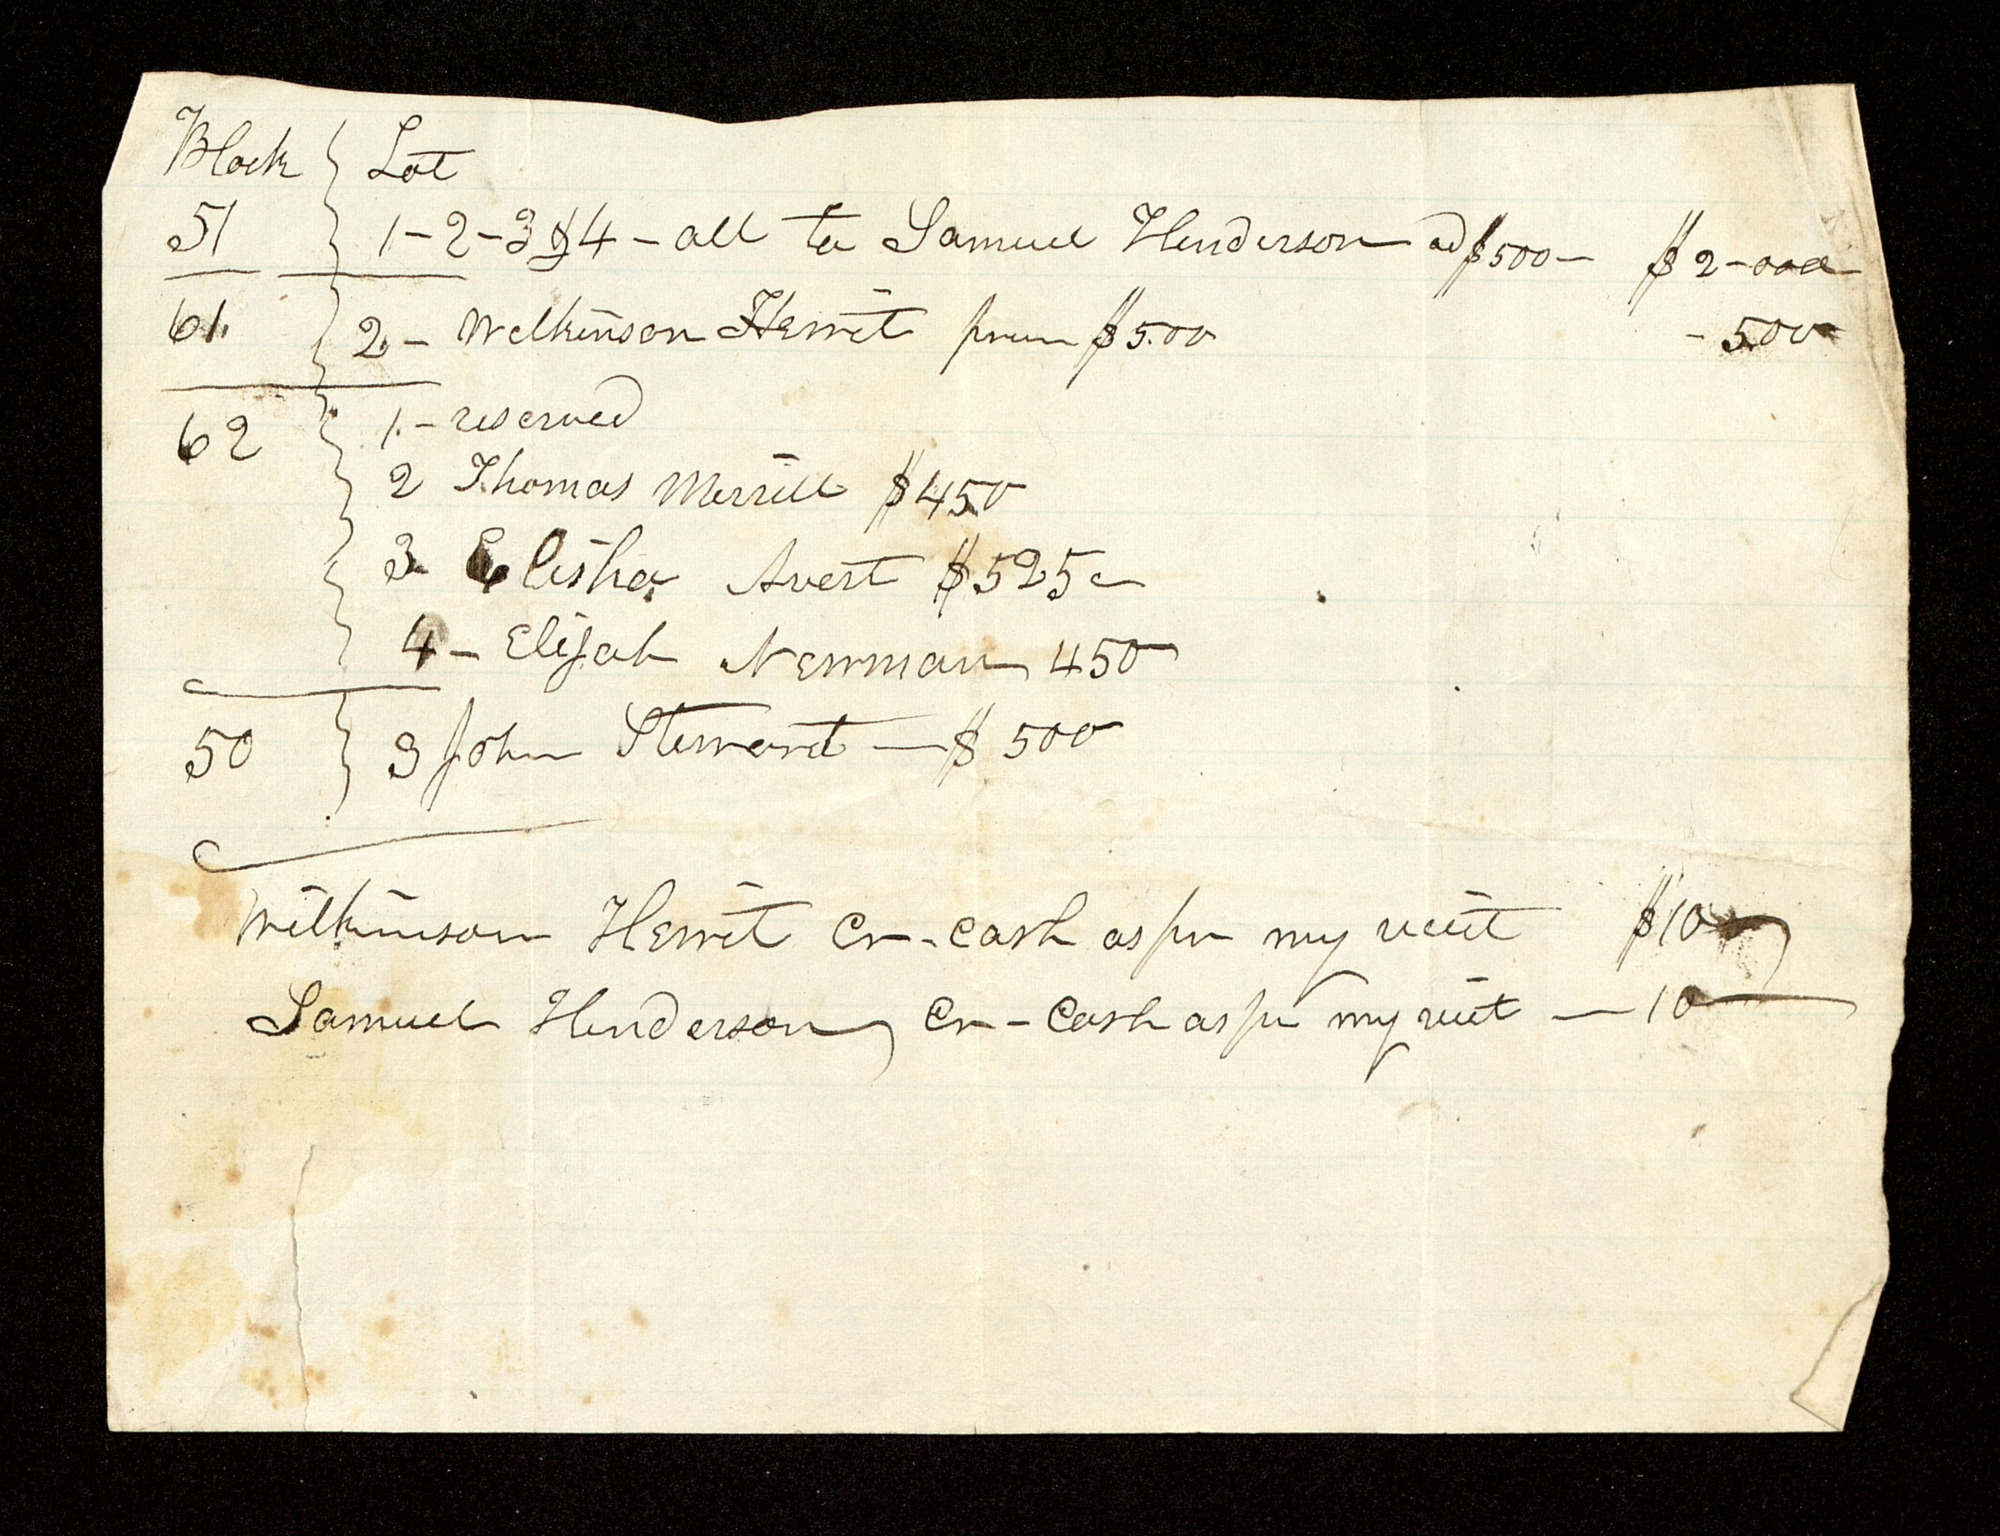 Block } Lot
51 } 1-2-3 & 4 - all to Samuel Henderson ad $500- $2-000
61. } 2.- Wilkinson Hewit $500 - 500
62 } 1.- reserved
2 Thomas Merrill $450
3 Elisha Avert $525-
4- Elijah Newman 450
50 } 3 John Steward - $500
Wilkinson Hewit Cr-cash as per my reict $10
Samuel Henderson, Cr-Cash as per my reict - 10